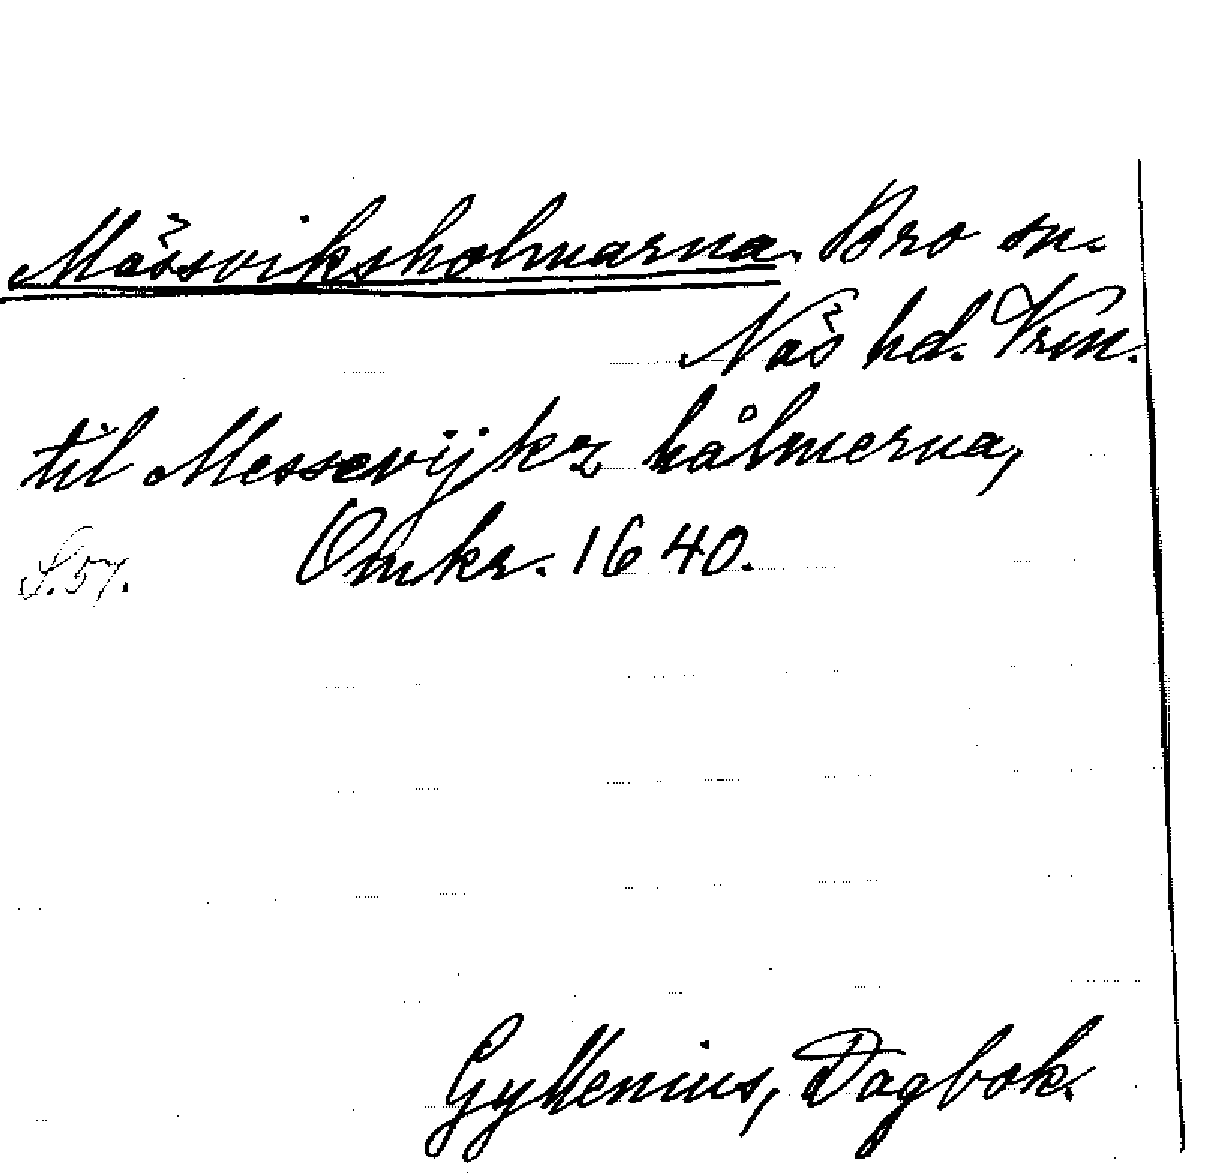 Mässviksholmarna. Bro sn.
Näs hd. Vrm.
til Messevijkz hålmerna,
S. 57. Omkr. 1640.
Gyllenius, Dagbok.